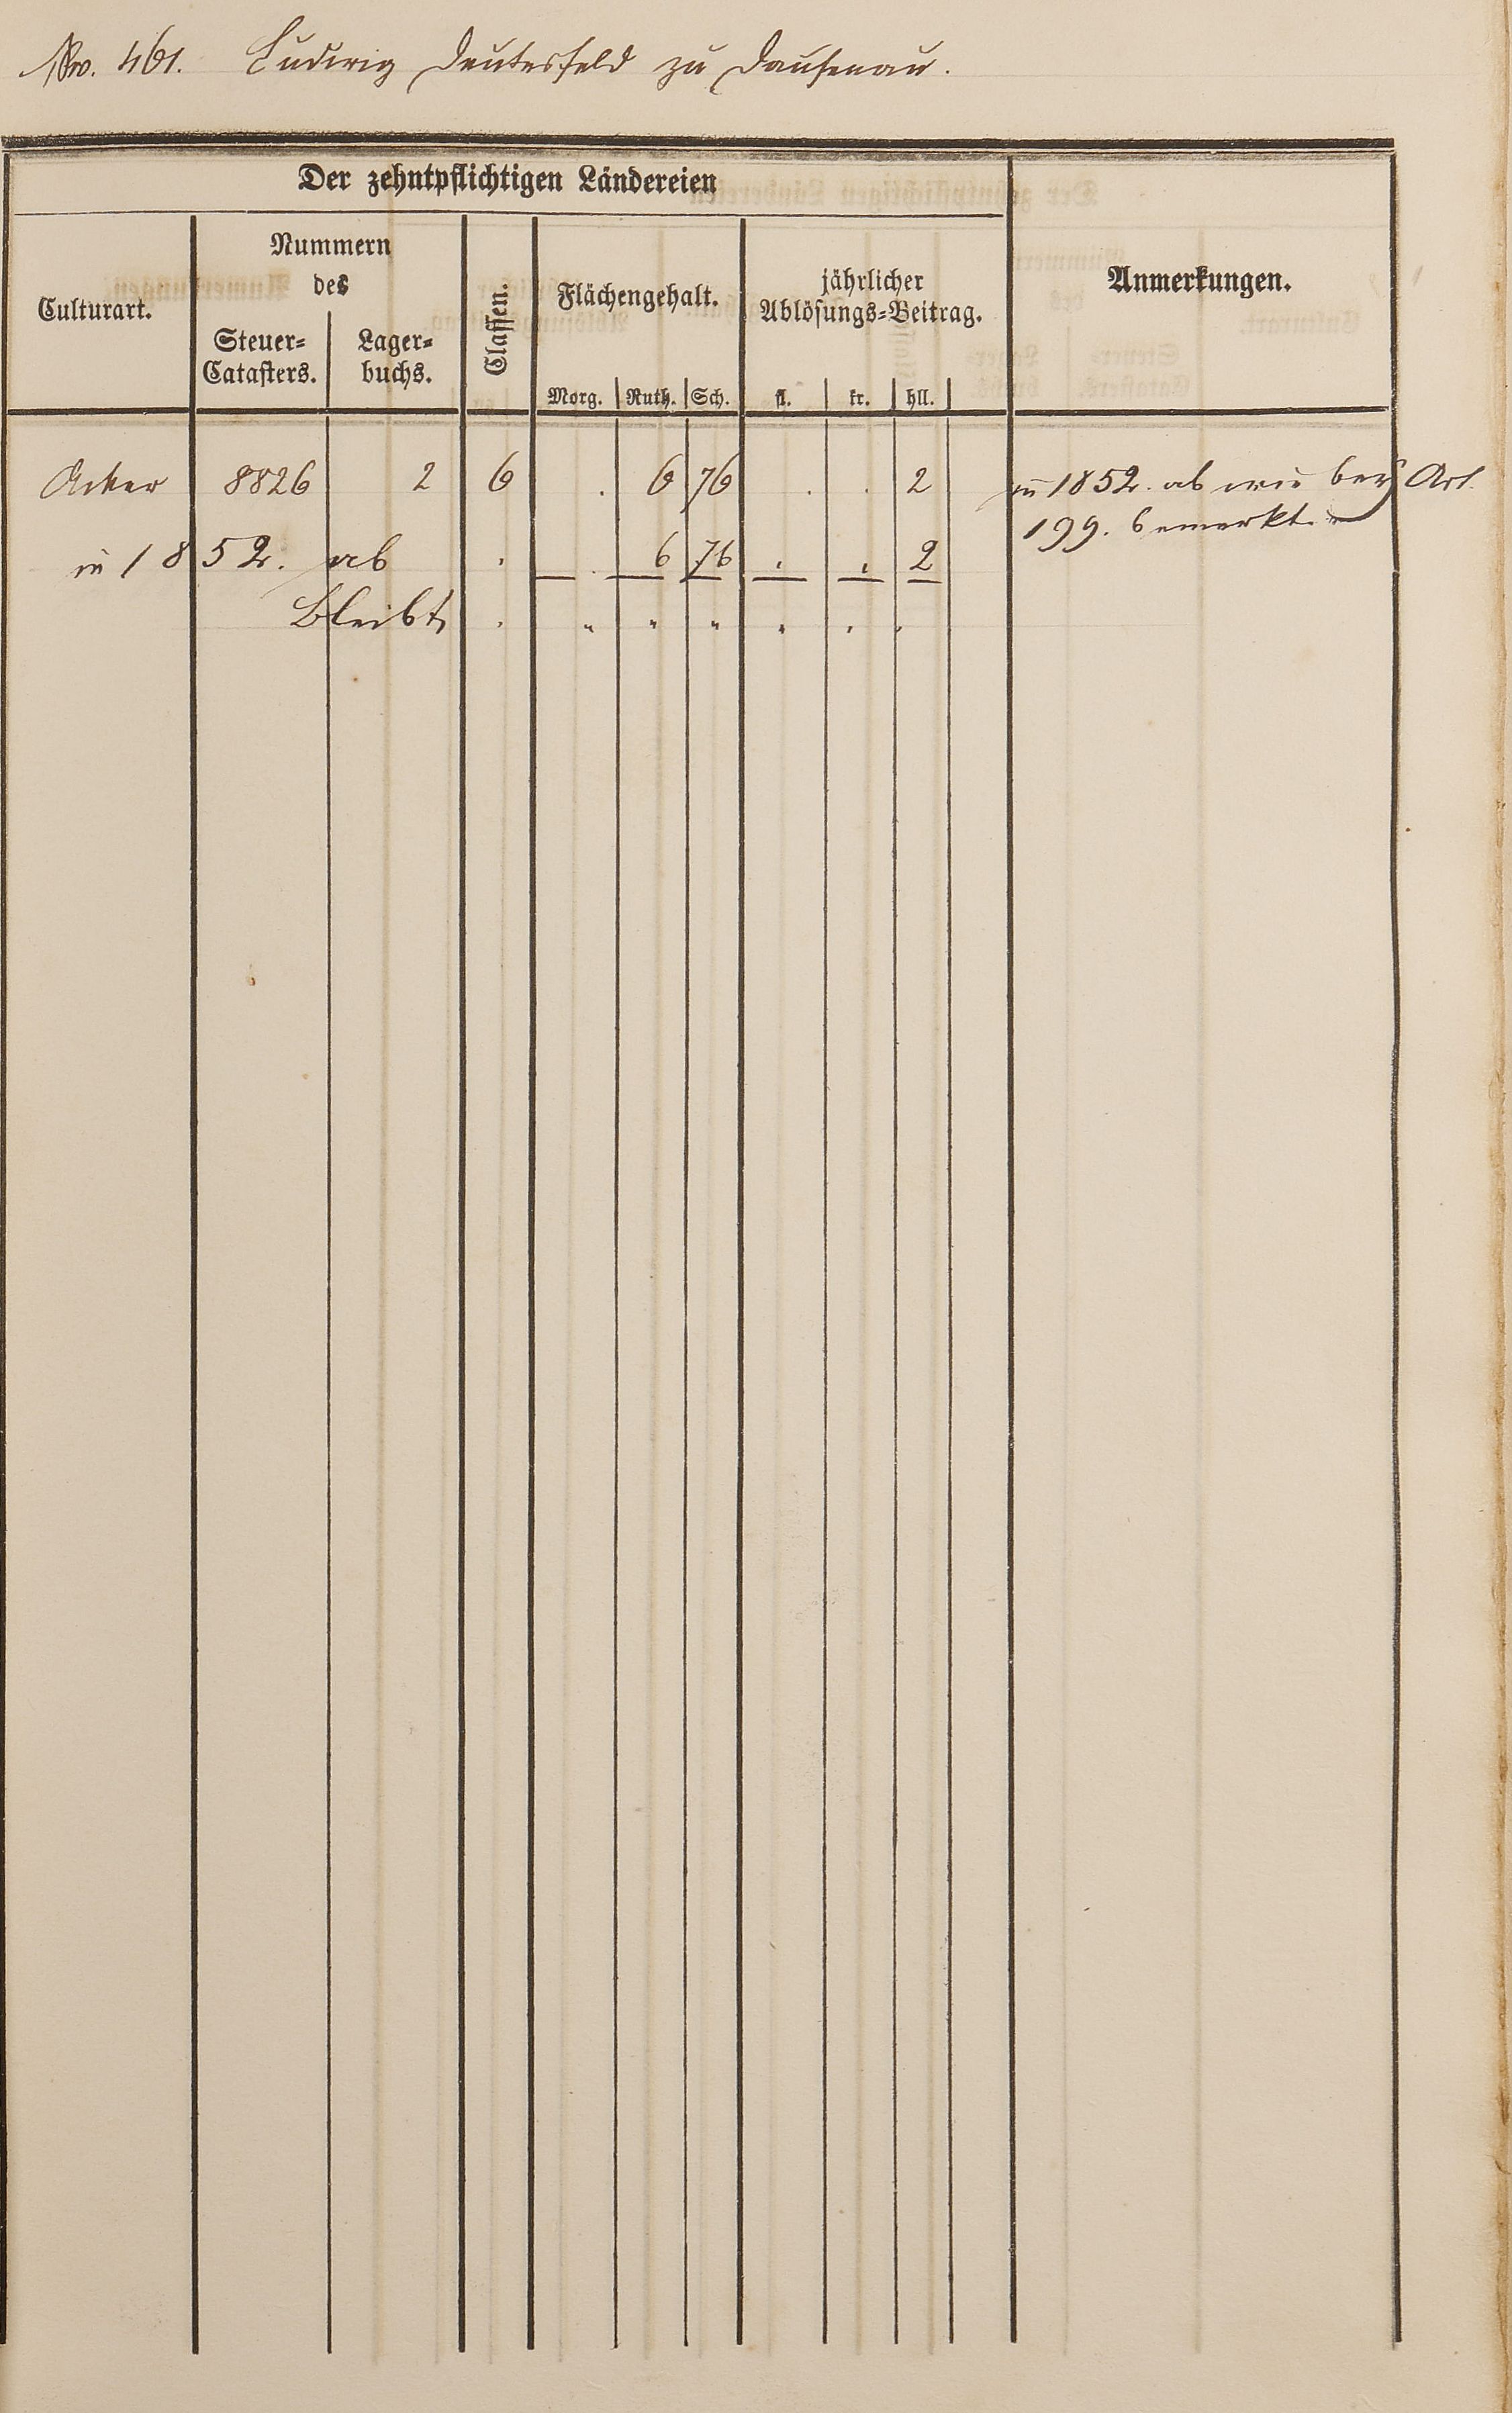 No. 461. Ludwig Deutesfeld zu Dausenau.
Der zehntpflichtigen Ländereien
Culturart.
Nummern
des
Steuer=
Catasters.
Lager=
buchs.
Classen.
Flächengehalt.
Morg. Ruth. Sch.
jährlicher
Ablösungs=Beitrag.
fl. kr. hll.
Anmerkungen.
Acker 8826 2 6 . 6 76 . . 2 in 1852. ab wie bey Art.
199. bemerkt.
in 1852. ab . . 6 76 . . 2
Bleibt . " " " . . .